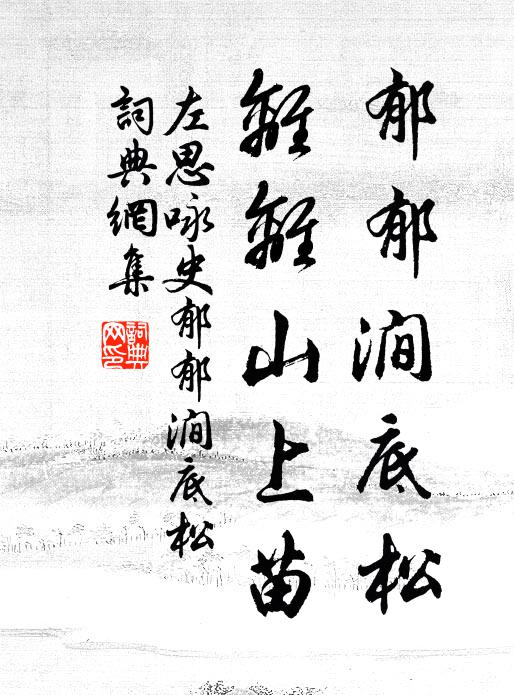 郁郁澗底松
離離山上苗
左思咏史郁郁澗底松
詞典網集
詞典网印